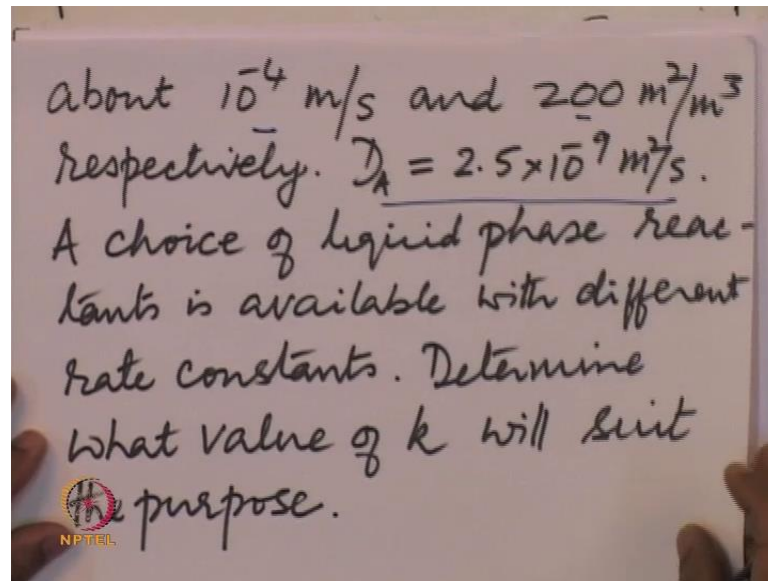 about 10⁻⁴ m/s and 200 m²/m³
respectively. D_A = 2.5×10⁻⁹ m²/s.
A choice of liquid phase reac-
tants is available with different
rate constants. Determine
what value of k will suit
the purpose.
NPTEL